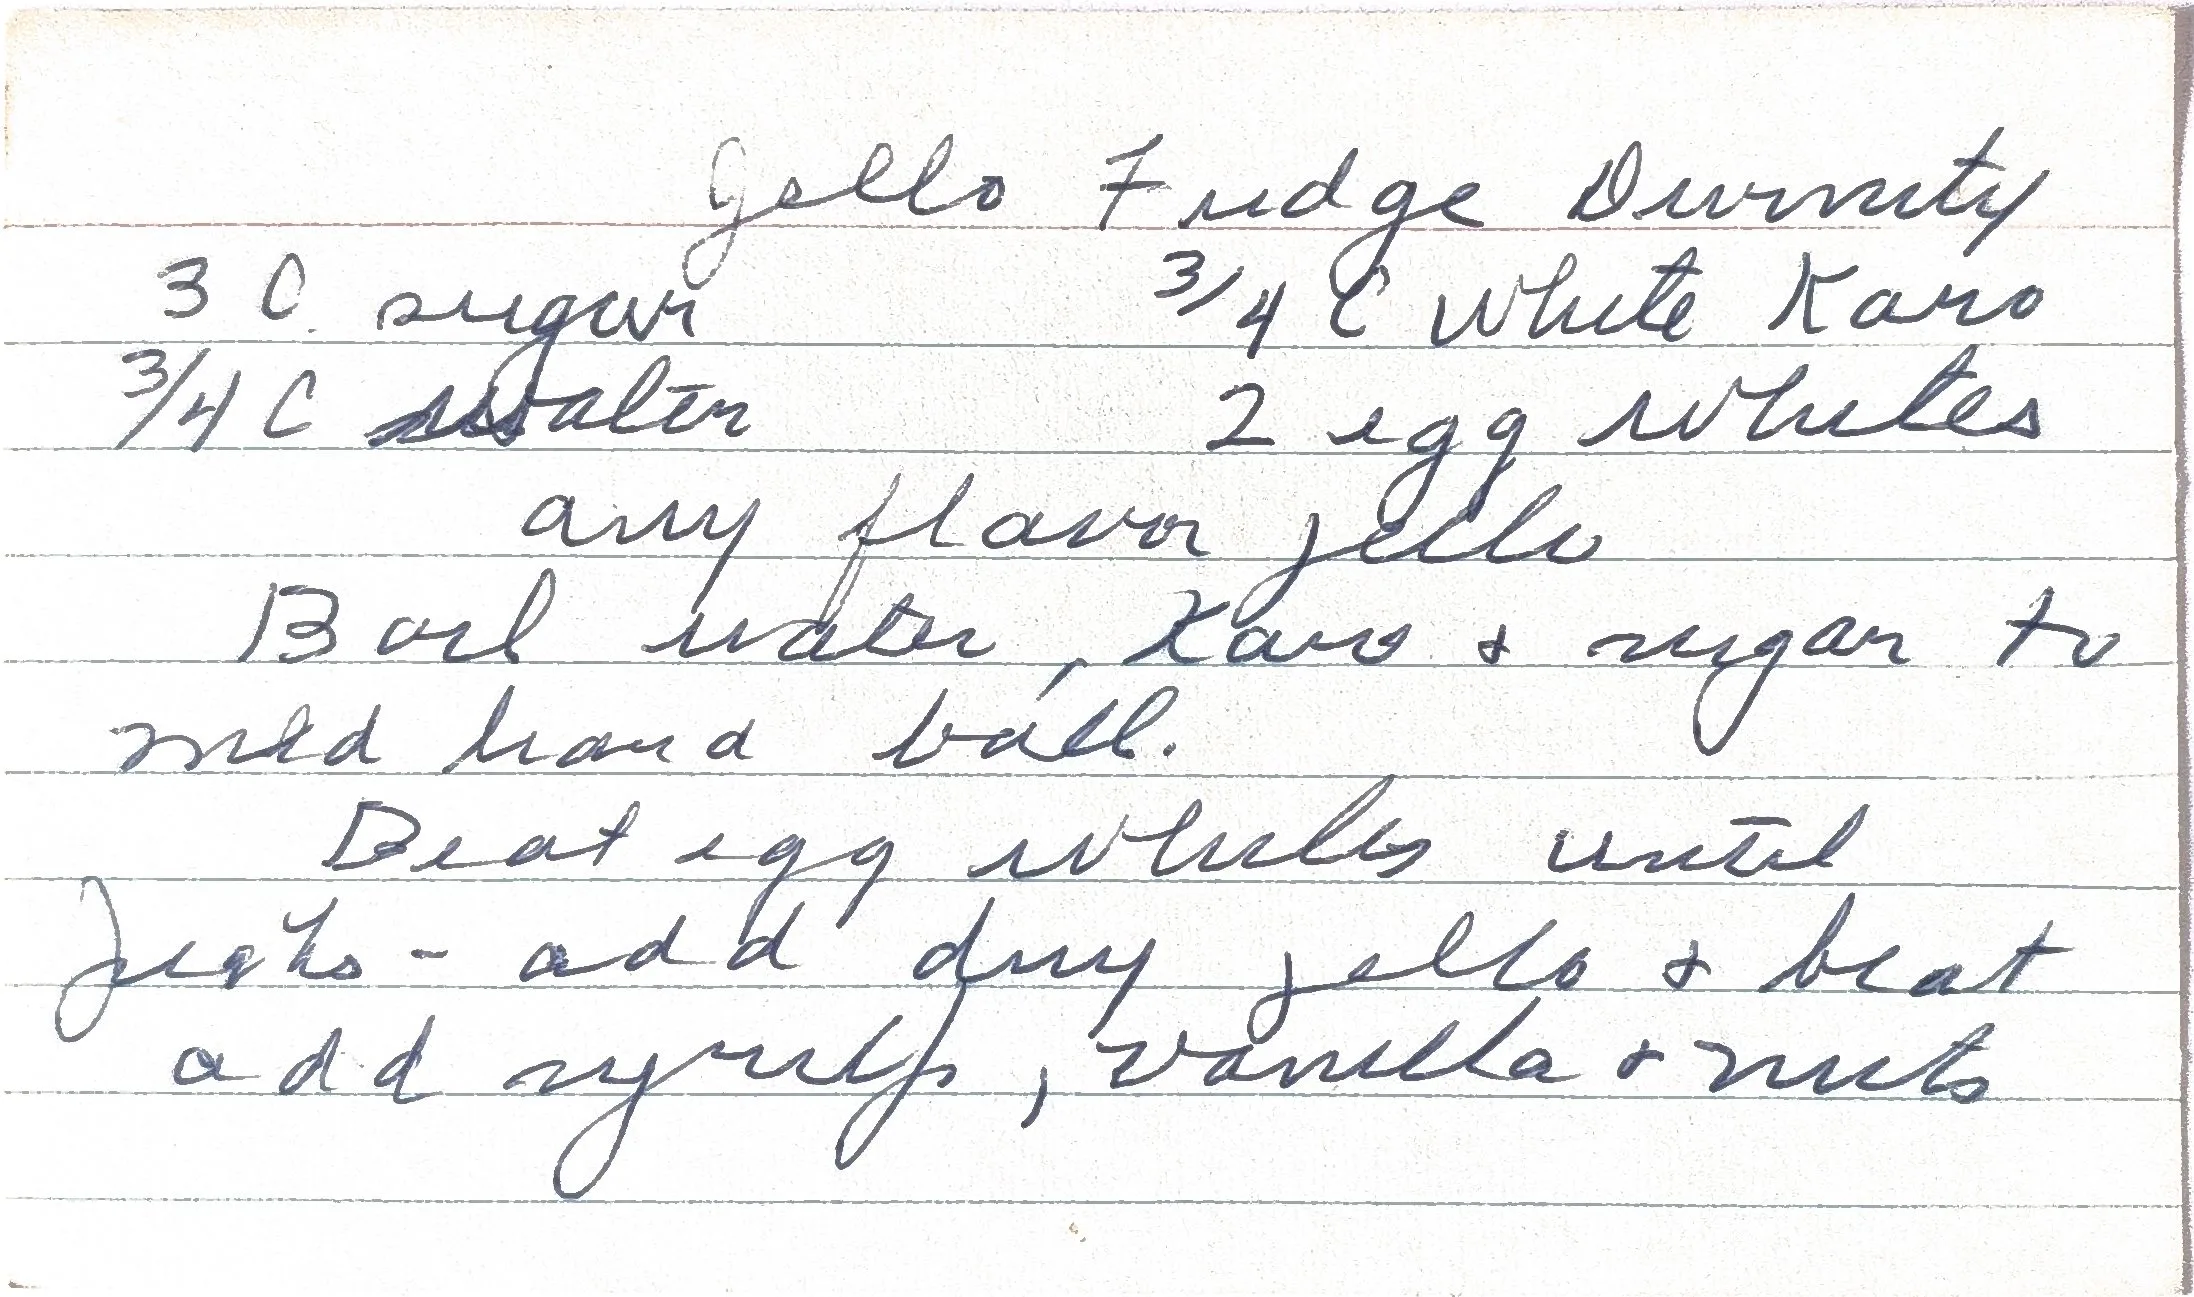 Jello Fudge Divinity
3 C. sugar 3/4 C White Karo
3/4 C water 2 egg whites
any flavor jello
Boil water, Karo & sugar to
med hard ball.
Beat egg whites until
peaks - add dry jello & beat
add syrup, vanilla & nuts